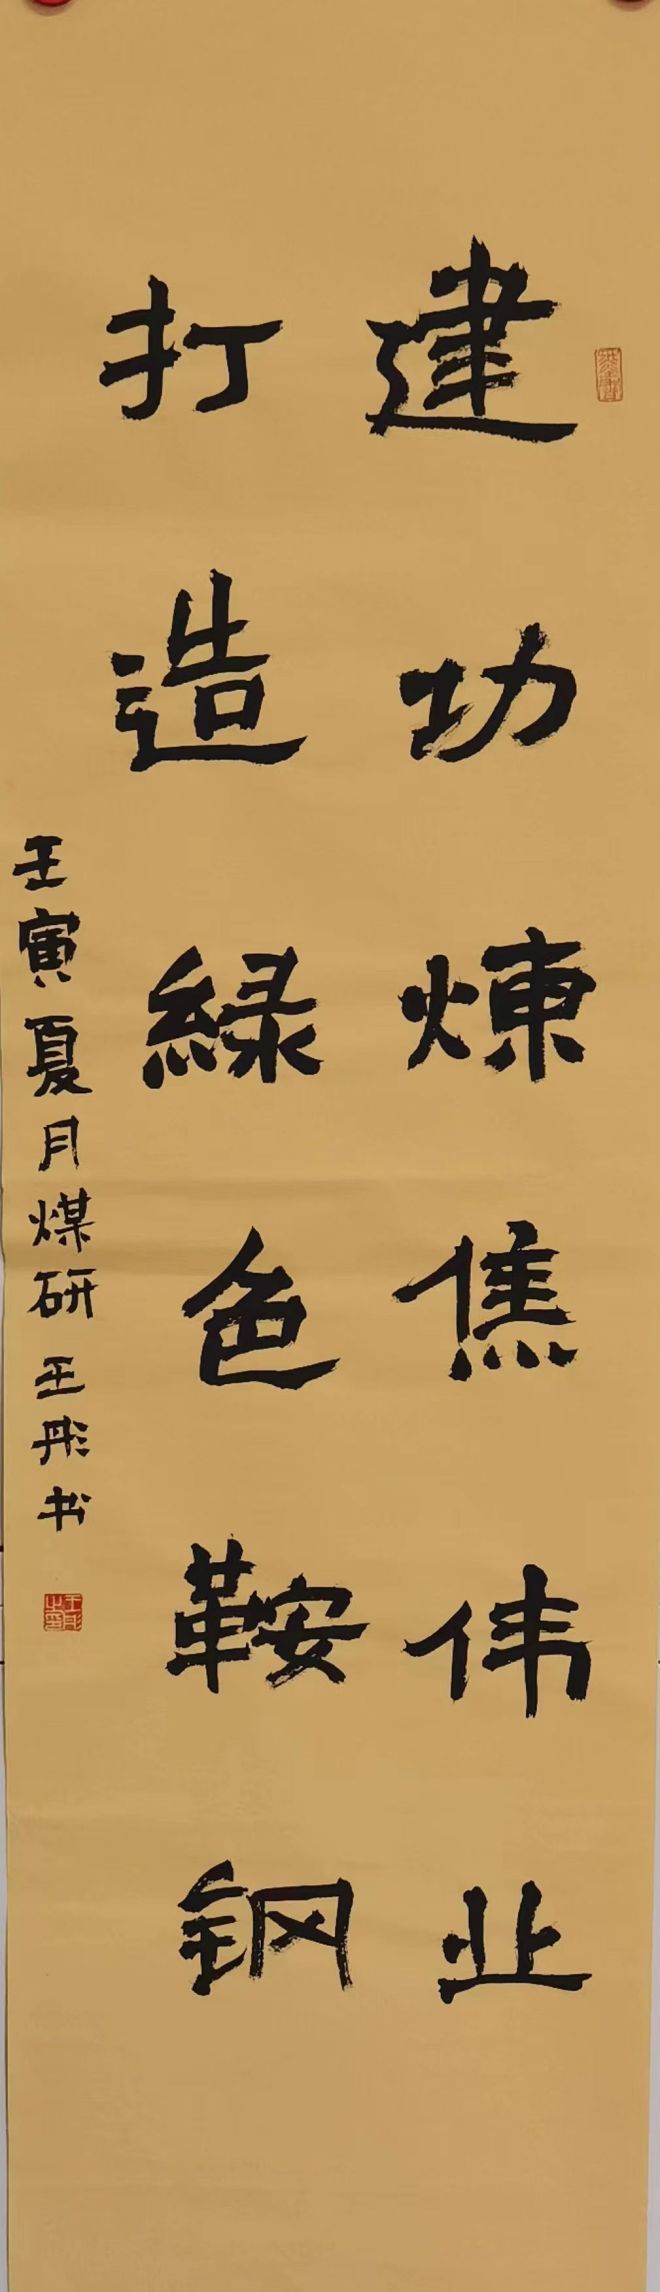 建功煉焦伟业
打造綠色鞍钢
壬寅夏月煤研王彤书